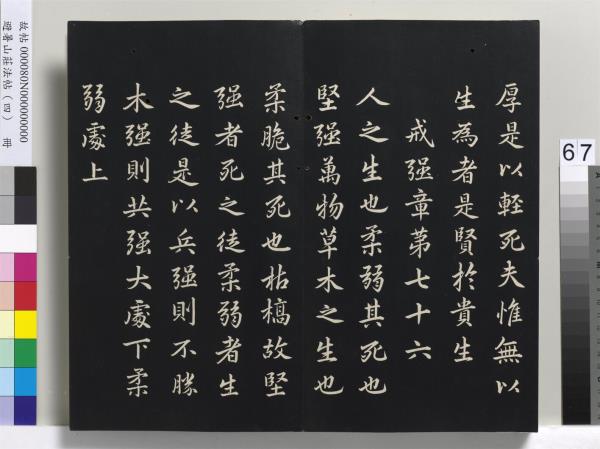 厚是以輕死夫惟無以
生為者是賢於貴生
戒强章第七十六
人之生也柔弱其死也
堅强萬物草木之生也
柔脆其死也枯槁故堅
强者死之徒柔弱者生
之徒是以兵强則不勝
木强則共强大處下柔
弱處上
故帖 000080N000000000
避暑山莊法帖（四） 冊
67